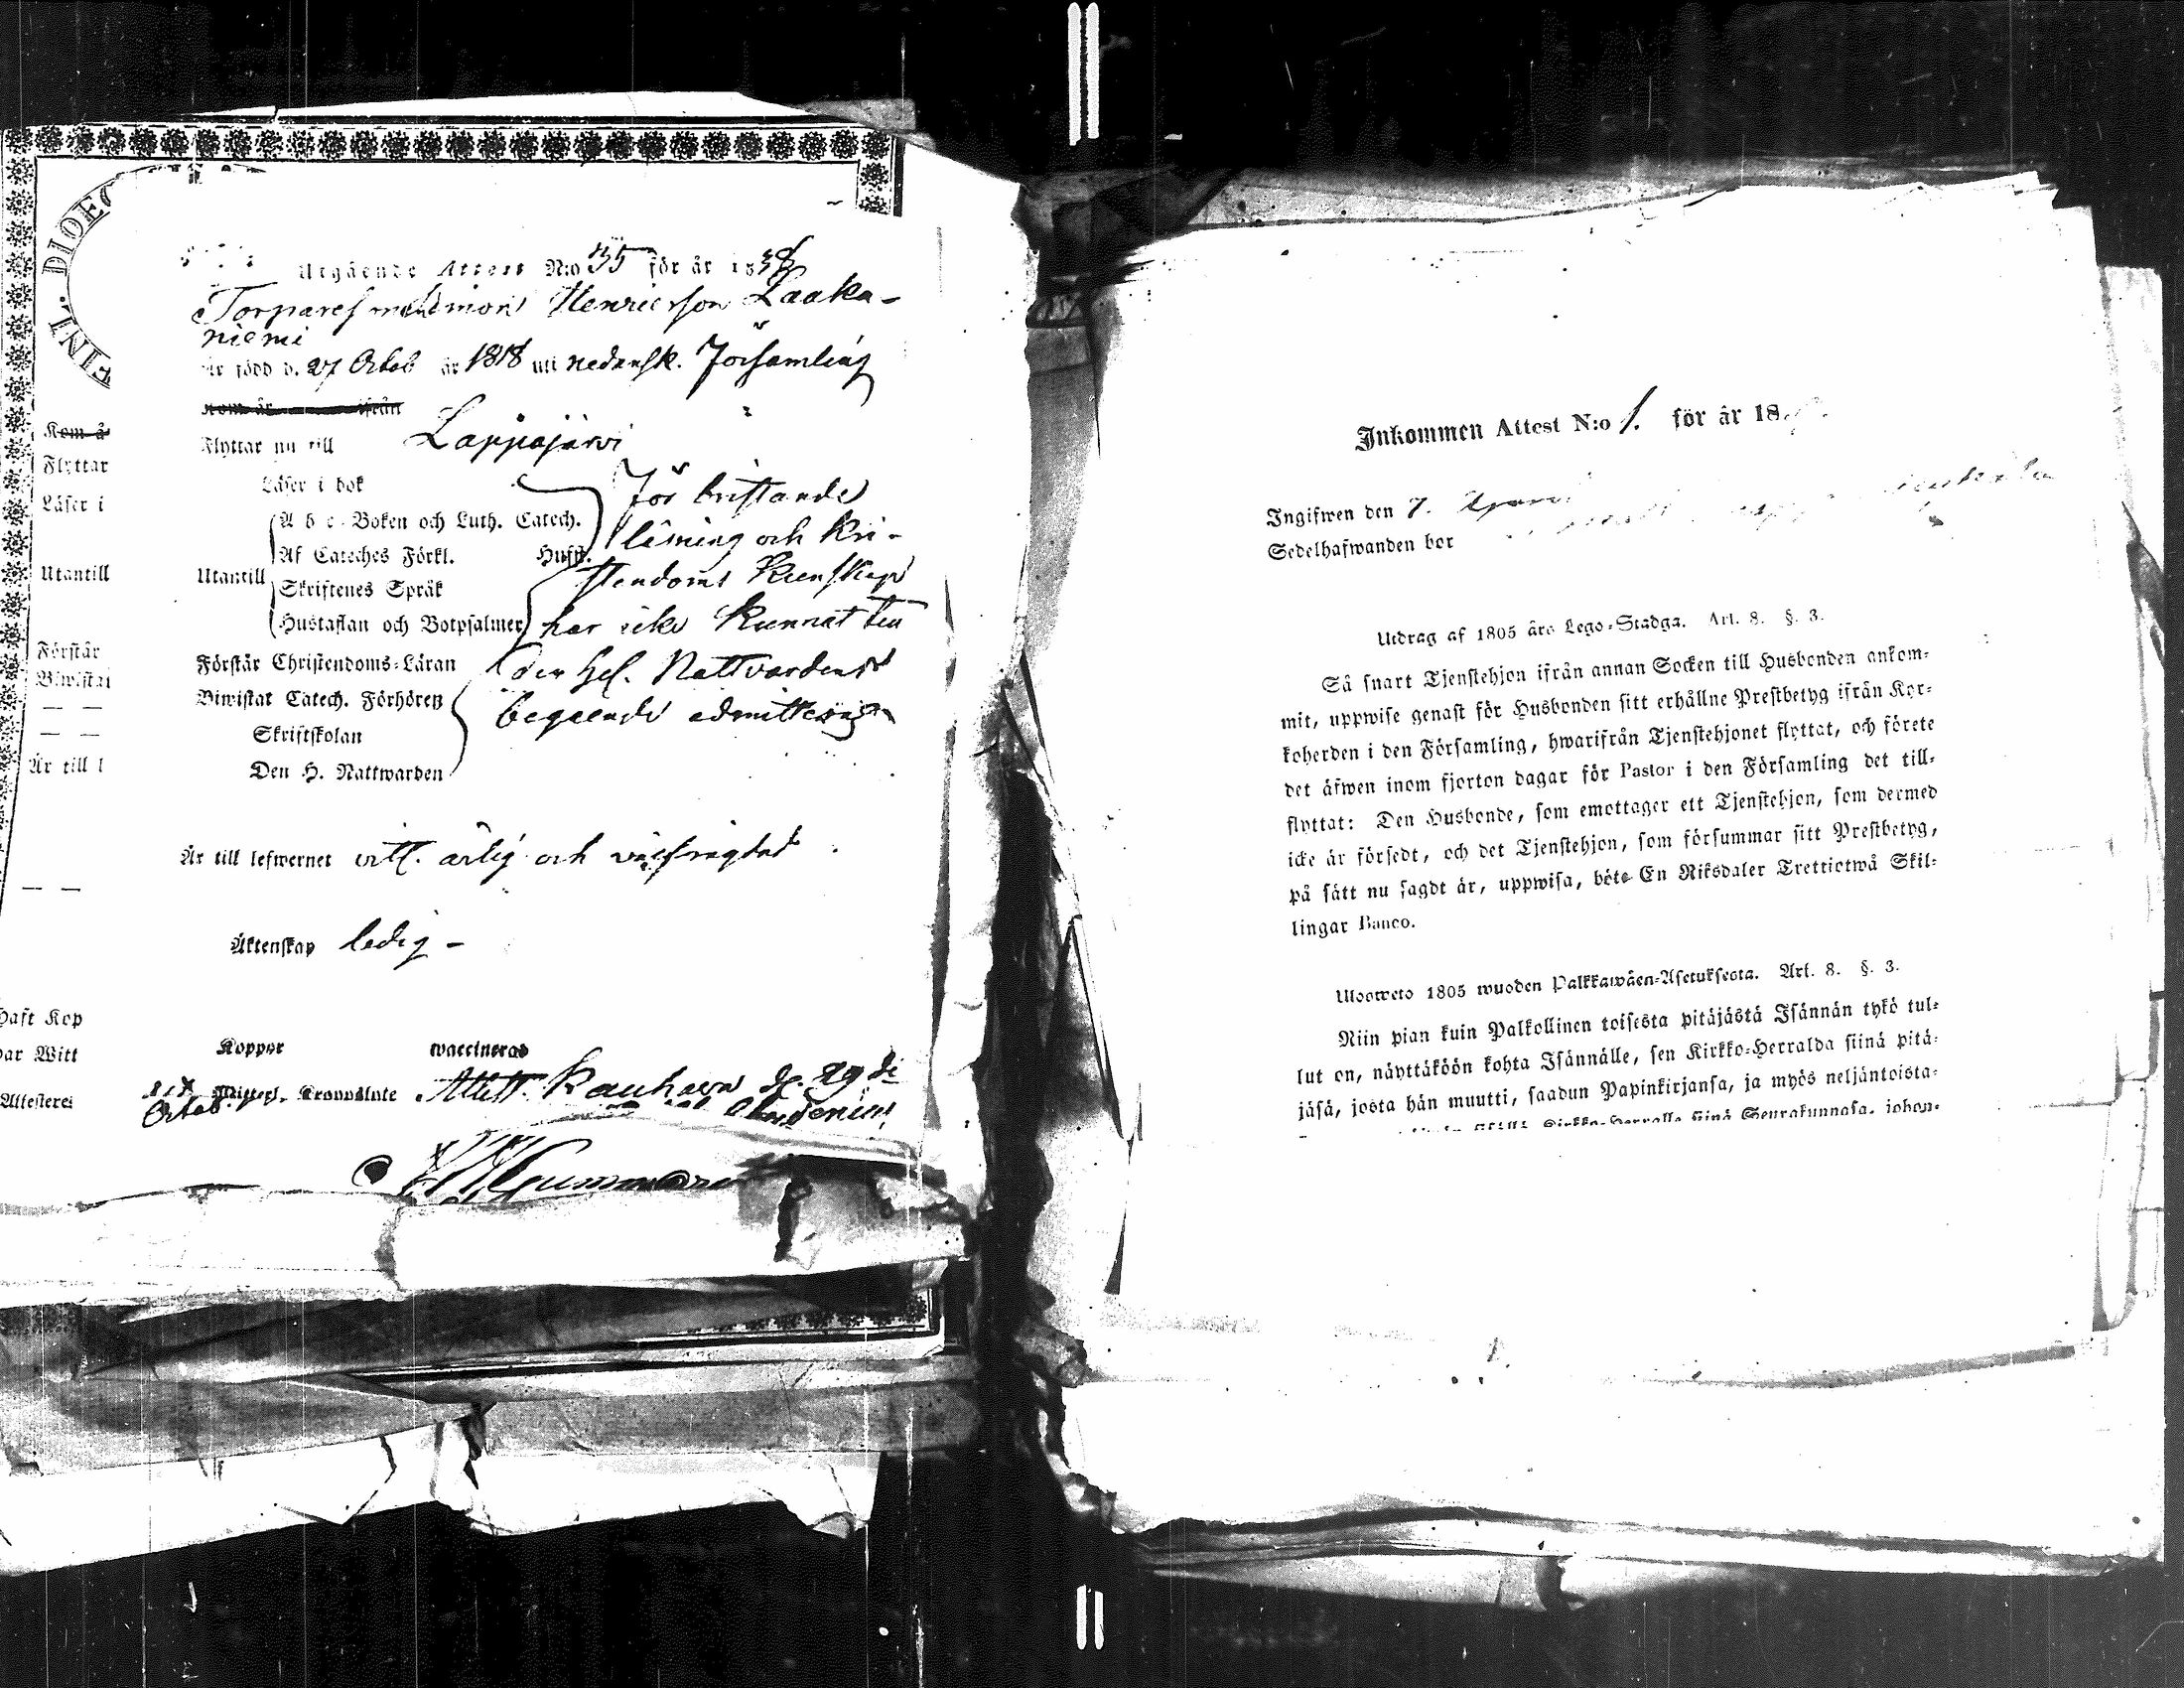 Utgående Attest N:o 35 för år 1838
Torpares son Simon Henricsson Laaka-
niemi
är född d. 27 Octob år 1818 uti nedansk. Församling
Kom år ifrån
Flyttar nu till Lappajärvi
Läser i bok För bristande
A b c-Boken och Luth. Catech. läsning och kri-
Af Cateches Förkl. Husft.
Utantill stendoms kunskap
Skriftenes Språk
Hustaflan och Botpsalmer har icke kunnat till
Förstår Christendoms-Läran den hel. Nattvardens
Biwistat Catech. Förhören begående admitteras
Skriftskolan
Den H. Nattwarden
Är till lefwernet vitt. ärlig och välfrägdad
Äktenskap ledig -
Koppor waccinerad
Attest. Kauhava d. 29 de
Octob.
DIOEC
FINL.
Kom å
Flyttar
Läser i
Utantill
Förstår
Biwistat
— —
— —
Är till l
— —
Haft Kop
har Witt
Attesterei
Inkommen Attest N:o 1. för år 18
Ingifwen den 7.
Sedelhafwanden bor
Utdrag af 1805 års Lego-Stadga. Art. 8. §. 3.
Så snart Tjenstehjon ifrån annan Socken till Husbonden ankom-
mit, uppwise genast för Husbonden sitt erhållne Prestbetyg ifrån Kyr-
koherden i den Församling, hwarifrån Tjenstehjonet flyttat, och förete
det äfwen inom fjorton dagar för Pastor i den Församling det till-
flyttat: Den Husbonde, som emottager ett Tjenstehjon, som dermed
icke är försedt, och det Tjenstehjon, som försummar sitt Prestbetyg,
på sätt nu sagdt är, uppwisa, böte En Riksdaler Trettiotwå Skil-
lingar Banco.
Ulosweto 1805 wuoden Palkkawäen-Asetuksesta. Art. 8. §. 3.
Niin pian kuin Palkollinen toisesta pitäjästä Isännän tykö tul-
lut on, näyttäköön kohta Isännälle, sen Kirkko-Herralda siinä pitä-
jäsä, josta hän muutti, saadun Papinkirjansa, ja myös neljäntoista-
Kirkko-Herralle siinä Seurakunnasa, johon-